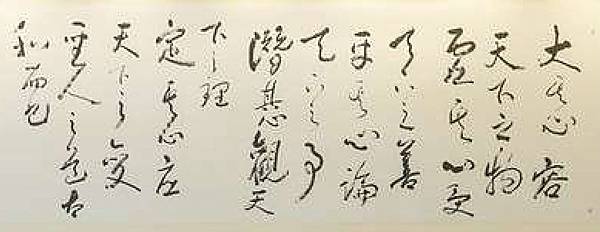 大其心容
天下之物
虛其心受
天下之善
平其心論
天下之事
潛其心觀天
下之理
定其心应
天下之變
聖人之
和而已